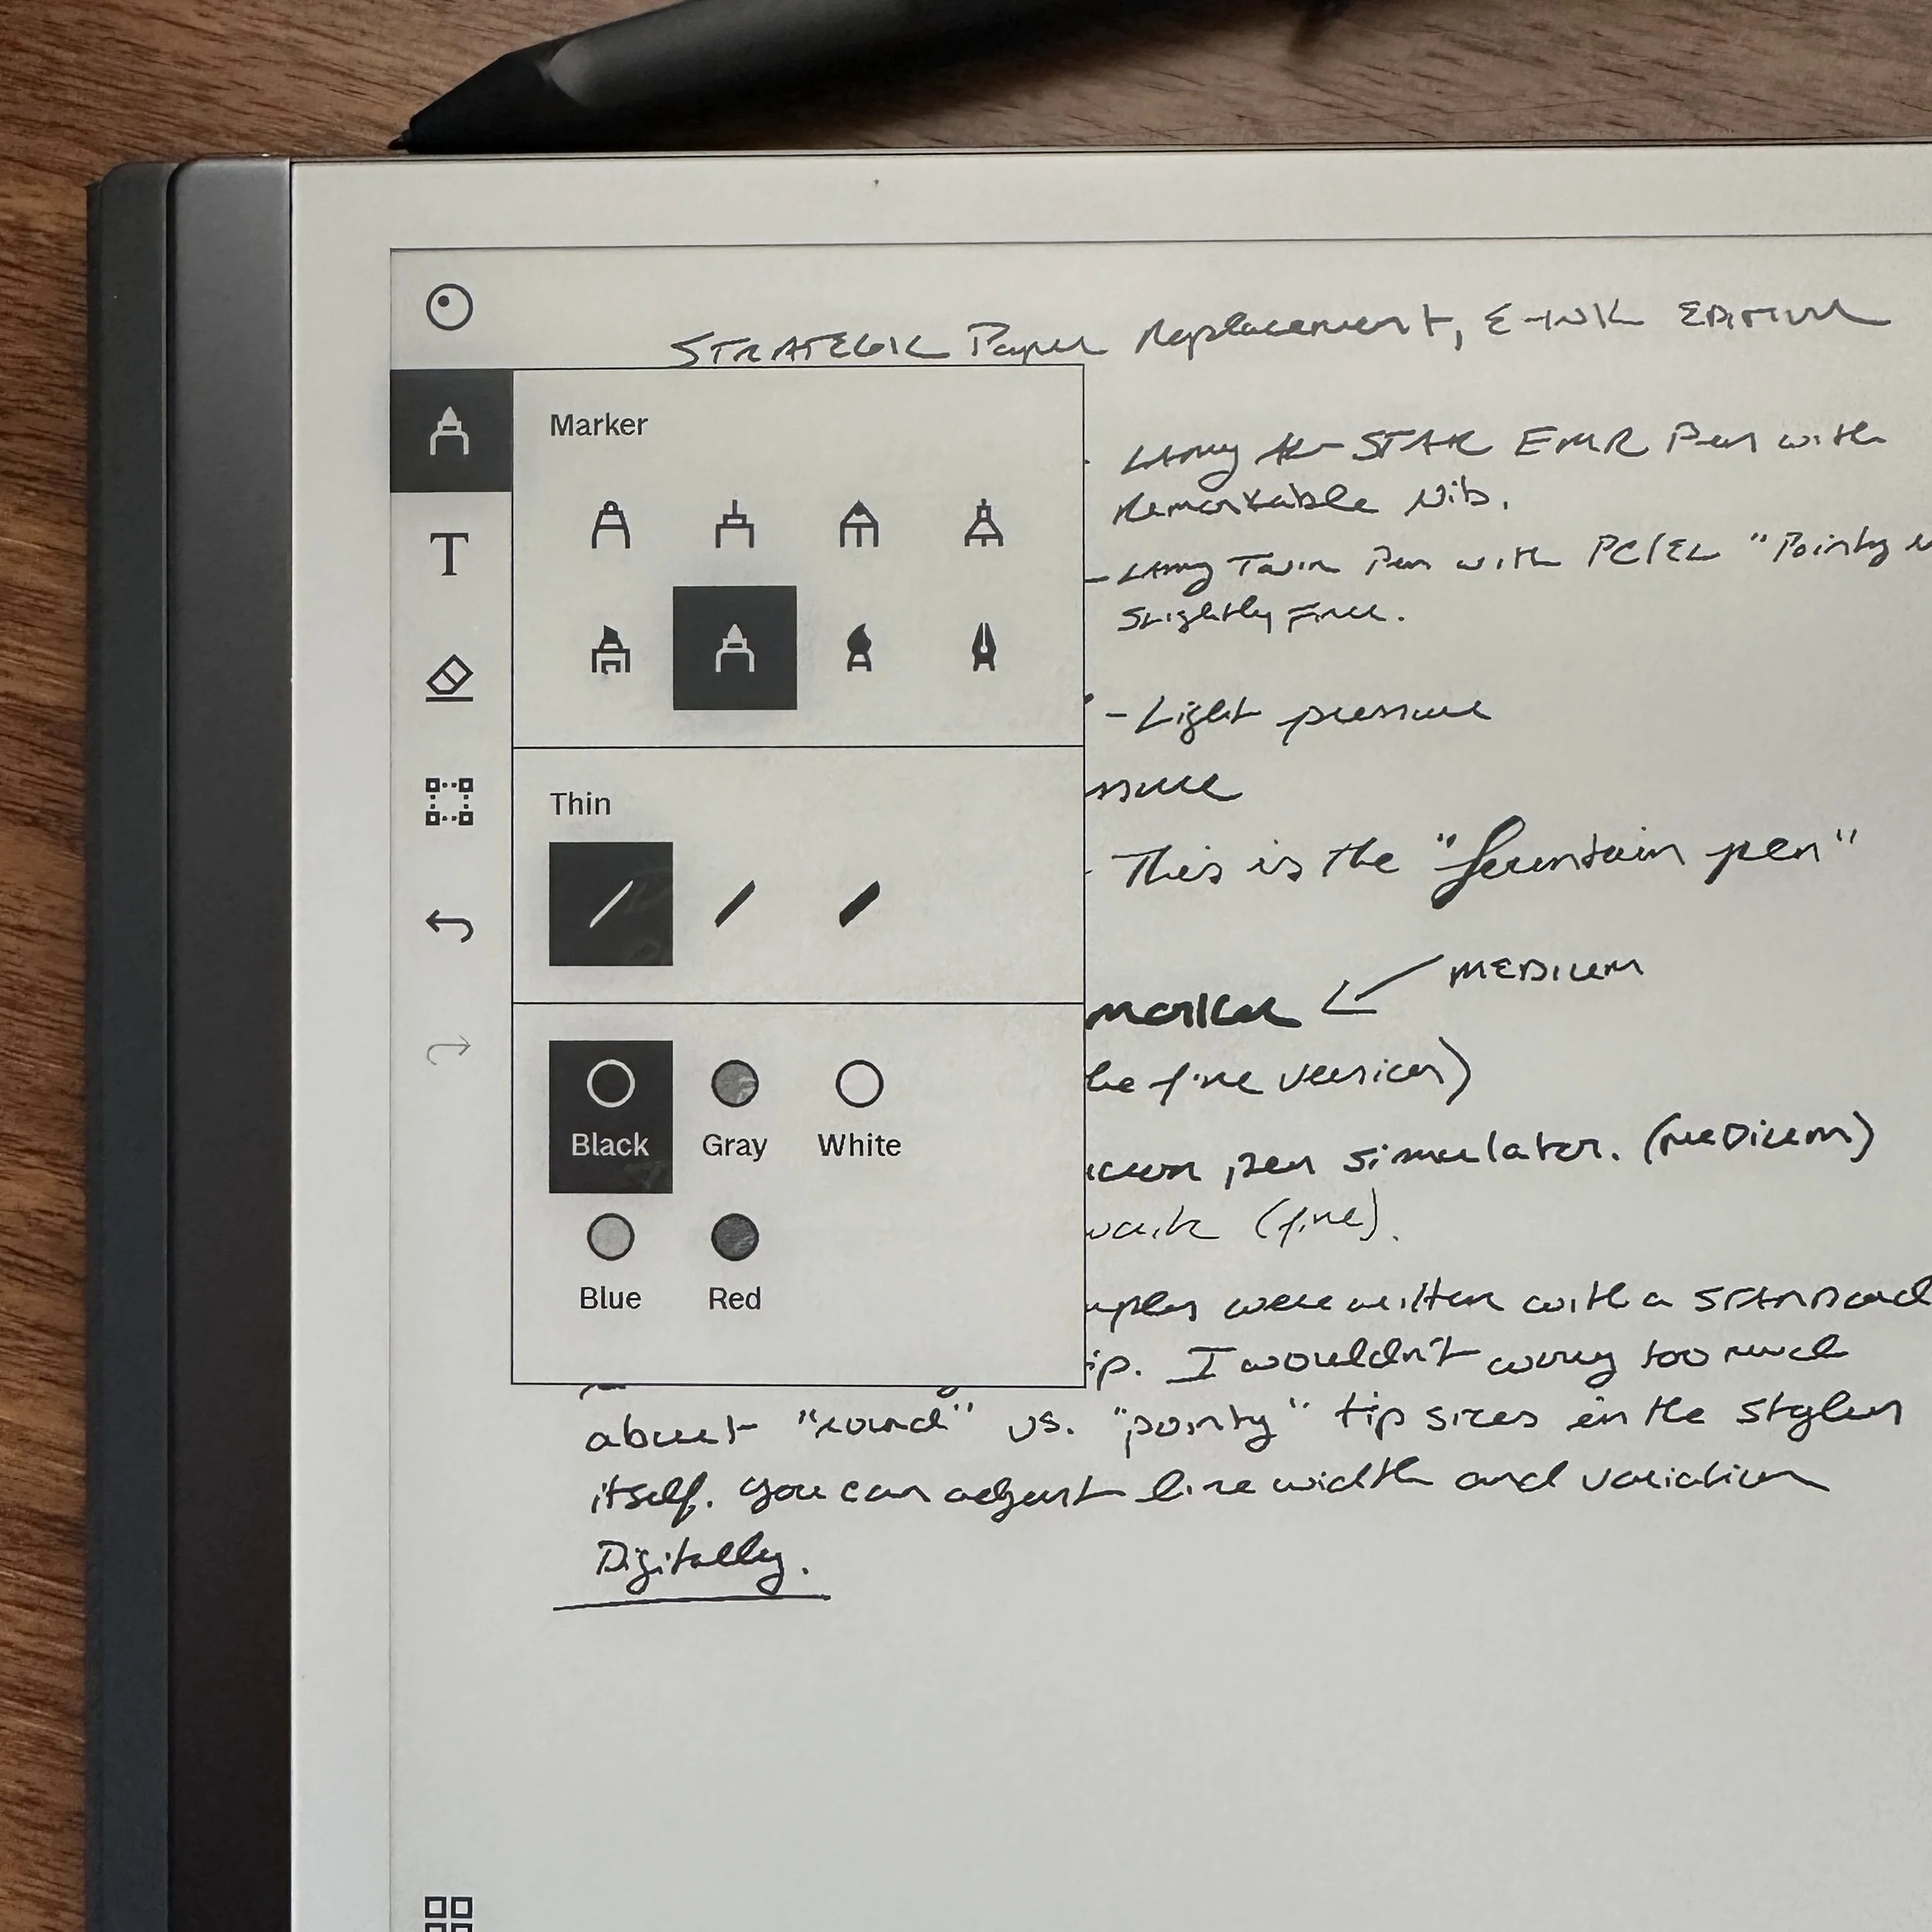 STRATEGIC Paper Replacement, E-INK EDITION
Marker
- Lamy Al-STAR EMR Pen with
Remarkable Nib.
T
- Lamy Twin Pen with PC/EL "Pointy
Slightly Fine.
- Light pressure
ssure
Thin
- This is the "fountain pen"
MEDIUM
marker
he fine version)
Black
Gray
White
pen simulator. (medium)
(fine).
Blue
Red
mples were written with a STANDARD
ip. I wouldn't worry too much
about "round" vs. "pointy" tip sizes in the stylus
itself. you can adjust line width and variation
Digitally.